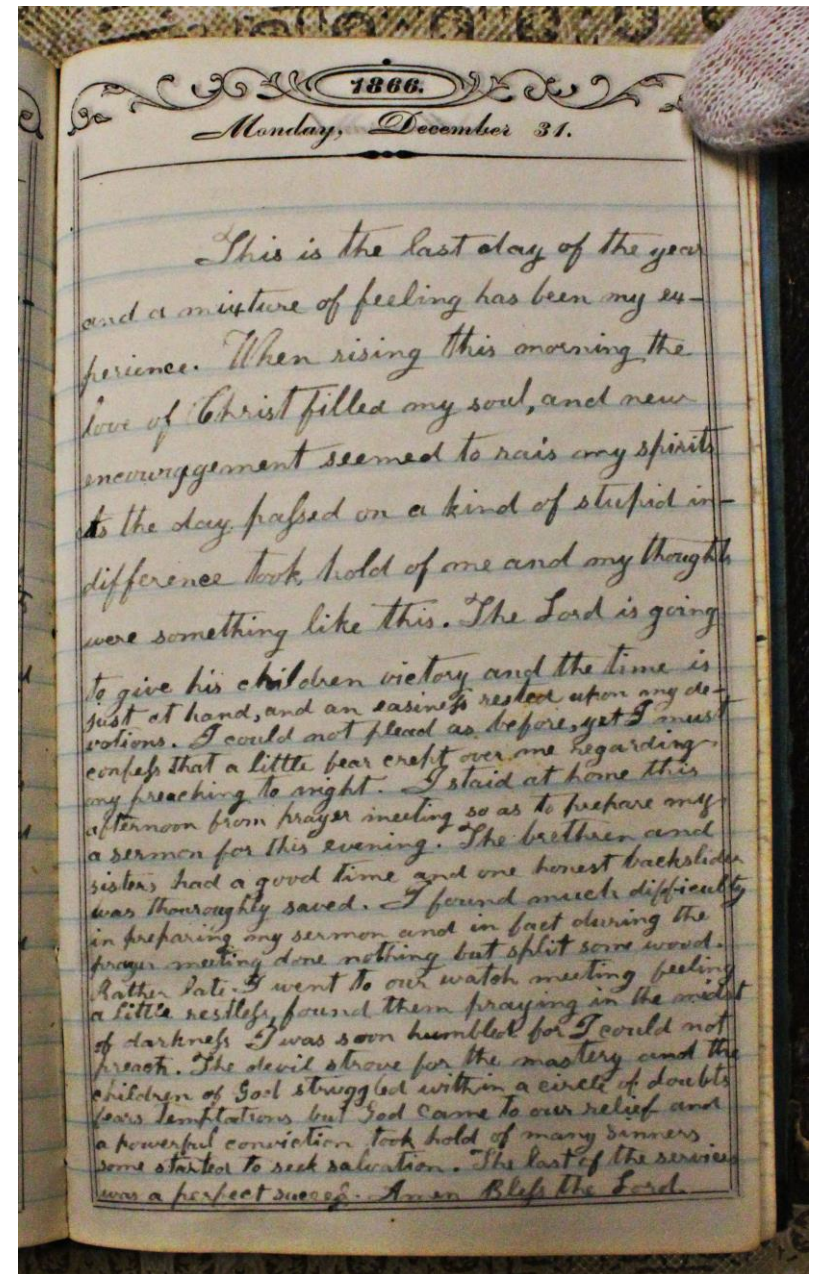 1866.
Monday, December 31.
This is the last day of the year
and a mixture of feeling has been my ex-
perience. When rising this morning the
love of Christ filled my soul, and new
encouragement seemed to rais my spirits
As the day passed on a kind of stupid in-
difference took hold of me and my thoughts
were something like this. The Lord is going
to give his children victory and the time is
just at hand, and an easiness rested upon my de-
votions. I could not plead as before, yet I must
confess that a little fear crept over me regarding
my preaching to night. I staid at home this
afternoon from prayer meeting so as to prepare my
a sermon for this evening. The brethren and
sisters had a good time and one honest backslider
was thouroughly saved. I found much difficulty
in preparing my sermon and in fact during the
prayer meeting done nothing but split some wood.
Rather late I went to our watch meeting feeling
a little restless, found them praying in the midst
of darkness I was soon humbled for I could not
preach. The devil strove for the mastery and the
children of God struggled within a circle of doubts
fears temptations but God came to our relief and
a powerful conviction took hold of many sinners
some started to seek salvation. The last of the services
was a perfect success. Amen Bless the Lord.